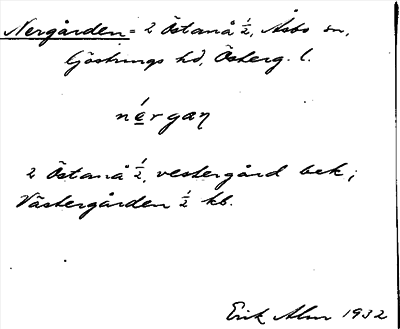 Nergården = 2 Östanå ½, Åsbo sn,
Göstrings hd, Österg. l.
nérgaŋ
2 Östanå ½, vestergård bek;
Västergården ½ kb.
Erik Alm 1932